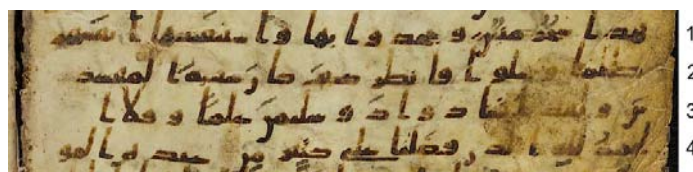 هذا سحر مبين وجحدوا بها واستيقنتها انفسهم 1
ظلما وعلوا فانظر كيف كان عقبة المفسد 2
ين ولقد اتينا داود وسليمن علما وقالا ا 3
لحمد لله الذي فضلنا على كثير من عباده المو 4